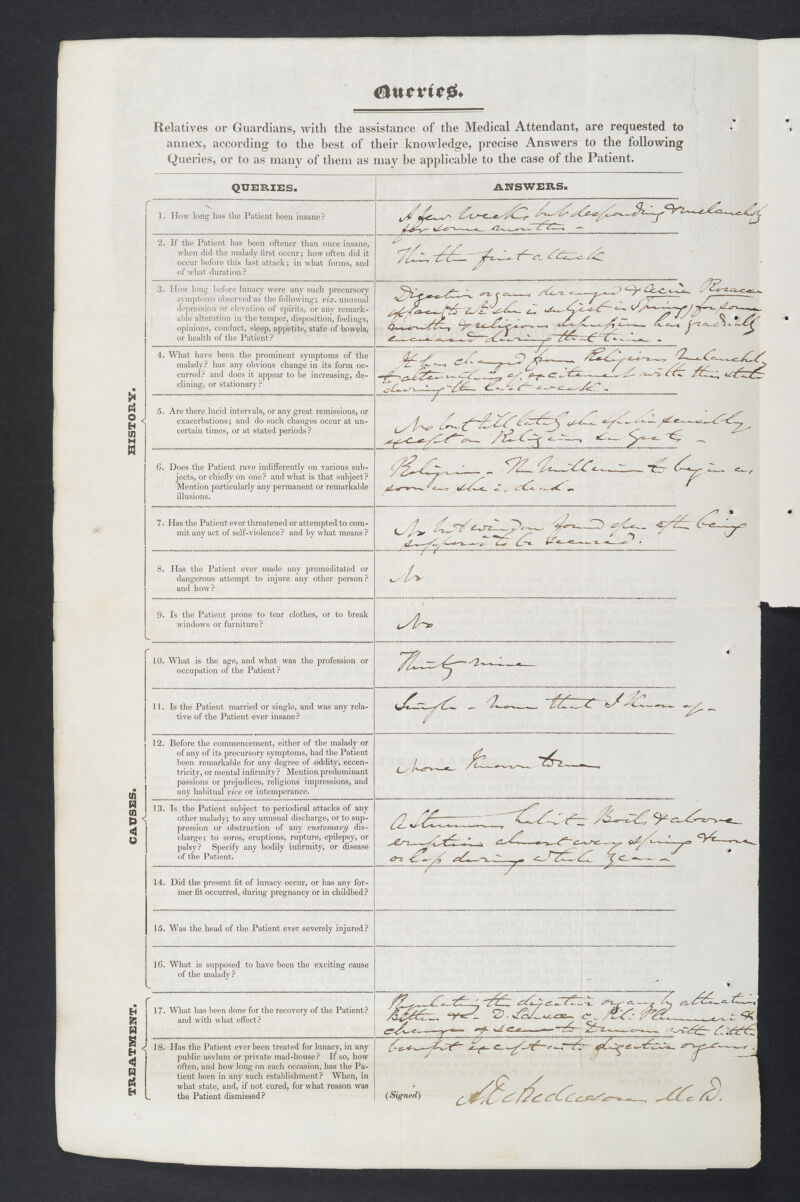 Queries.
Relatives or Guardians, with the assistance of the Medical Attendant, are requested to
annex, according to the best of their knowledge, precise Answers to the following
Queries, or to as many of them as may be applicable to the case of the Patient.
QUERIES.
ANSWERS.
HISTORY.
1. How long has the Patient been insane?
A few Weeks but desponding & melancholy
for some months -
2. If the Patient has been oftener than once insane,
when did the malady first occur; how often did it
occur before this last attack; in what forms, and
of what duration?
This the first attack
3. How long before lunacy were any such precursory
symptoms observed as the following; viz. unusual
depression or elevation of spirits, or any remark-
able alteration in the temper, disposition, feelings,
opinions, conduct, sleep, appetite, state of bowels,
or health of the Patient?
Digestive organs deranged & Acne Rosacea
she is subject in Spring, for some
months & religious depression has gradually
increased during that time -
4. What have been the prominent symptoms of the
malady? has any obvious change in its form oc-
curred? and does it appear to be increasing, de-
clining, or stationary?
It has changed from Religious Melancholy
to alternations of excitement with this state
during the last week -
5. Are there lucid intervals, or any great remissions, or
exacerbations; and do such changes occur at un-
certain times, or at stated periods?
No but till lately she spoke sensibly
except on Religious subjects -
6. Does the Patient rave indifferently on various sub-
jects, or chiefly on one? and what is that subject?
Mention particularly any permanent or remarkable
illusions.
Religion - The Millenium to begin as
soon as she is dead -
7. Has the Patient ever threatened or attempted to com-
mit any act of self-violence? and by what means?
No but window found open after being
supposed to be secured.
8. Has the Patient ever made any premeditated or
dangerous attempt to injure any other person?
and how?
No
9. Is the Patient prone to tear clothes, or to break
windows or furniture?
No
CAUSES.
10. What is the age, and what was the profession or
occupation of the Patient?
Thirty nine
11. Is the Patient married or single, and was any rela-
tive of the Patient ever insane?
Single - none that I know of -
12. Before the commencement, either of the malady or
of any of its precursory symptoms, had the Patient
been remarkable for any degree of oddity, eccen-
tricity, or mental infirmity? Mention predominant
passions or prejudices, religious impressions, and
any habitual vice or intemperance.
None Known to me
13. Is the Patient subject to periodical attacks of any
other malady; to any unusual discharge, or to sup-
pression or obstruction of any customary dis-
charge; to sores, eruptions, rupture, epilepsy, or
palsy? Specify any bodily infirmity, or disease
of the Patient.
A Strumous habit - Boils & above
eruption almost every spring & more
or less during whole year -
14. Did the present fit of lunacy occur, or has any for-
mer fit occurred, during pregnancy or in childbed?
15. Was the head of the Patient ever severely injured?
16. What is supposed to have been the exciting cause
of the malady?
TREATMENT.
17. What has been done for the recovery of the Patient?
and with what effect?
Regulating the digestive organs by
Bitters &c - Pil: Plummeri &
change of scene to with little
benefit except with digestive organs.
18. Has the Patient ever been treated for lunacy, in any
public asylum or private mad-house? If so, how
often, and how long on each occasion, has the Pa-
tient been in any such establishment? When, in
what state, and, if not cured, for what reason was
the Patient dismissed?
(Signed)
M.D.